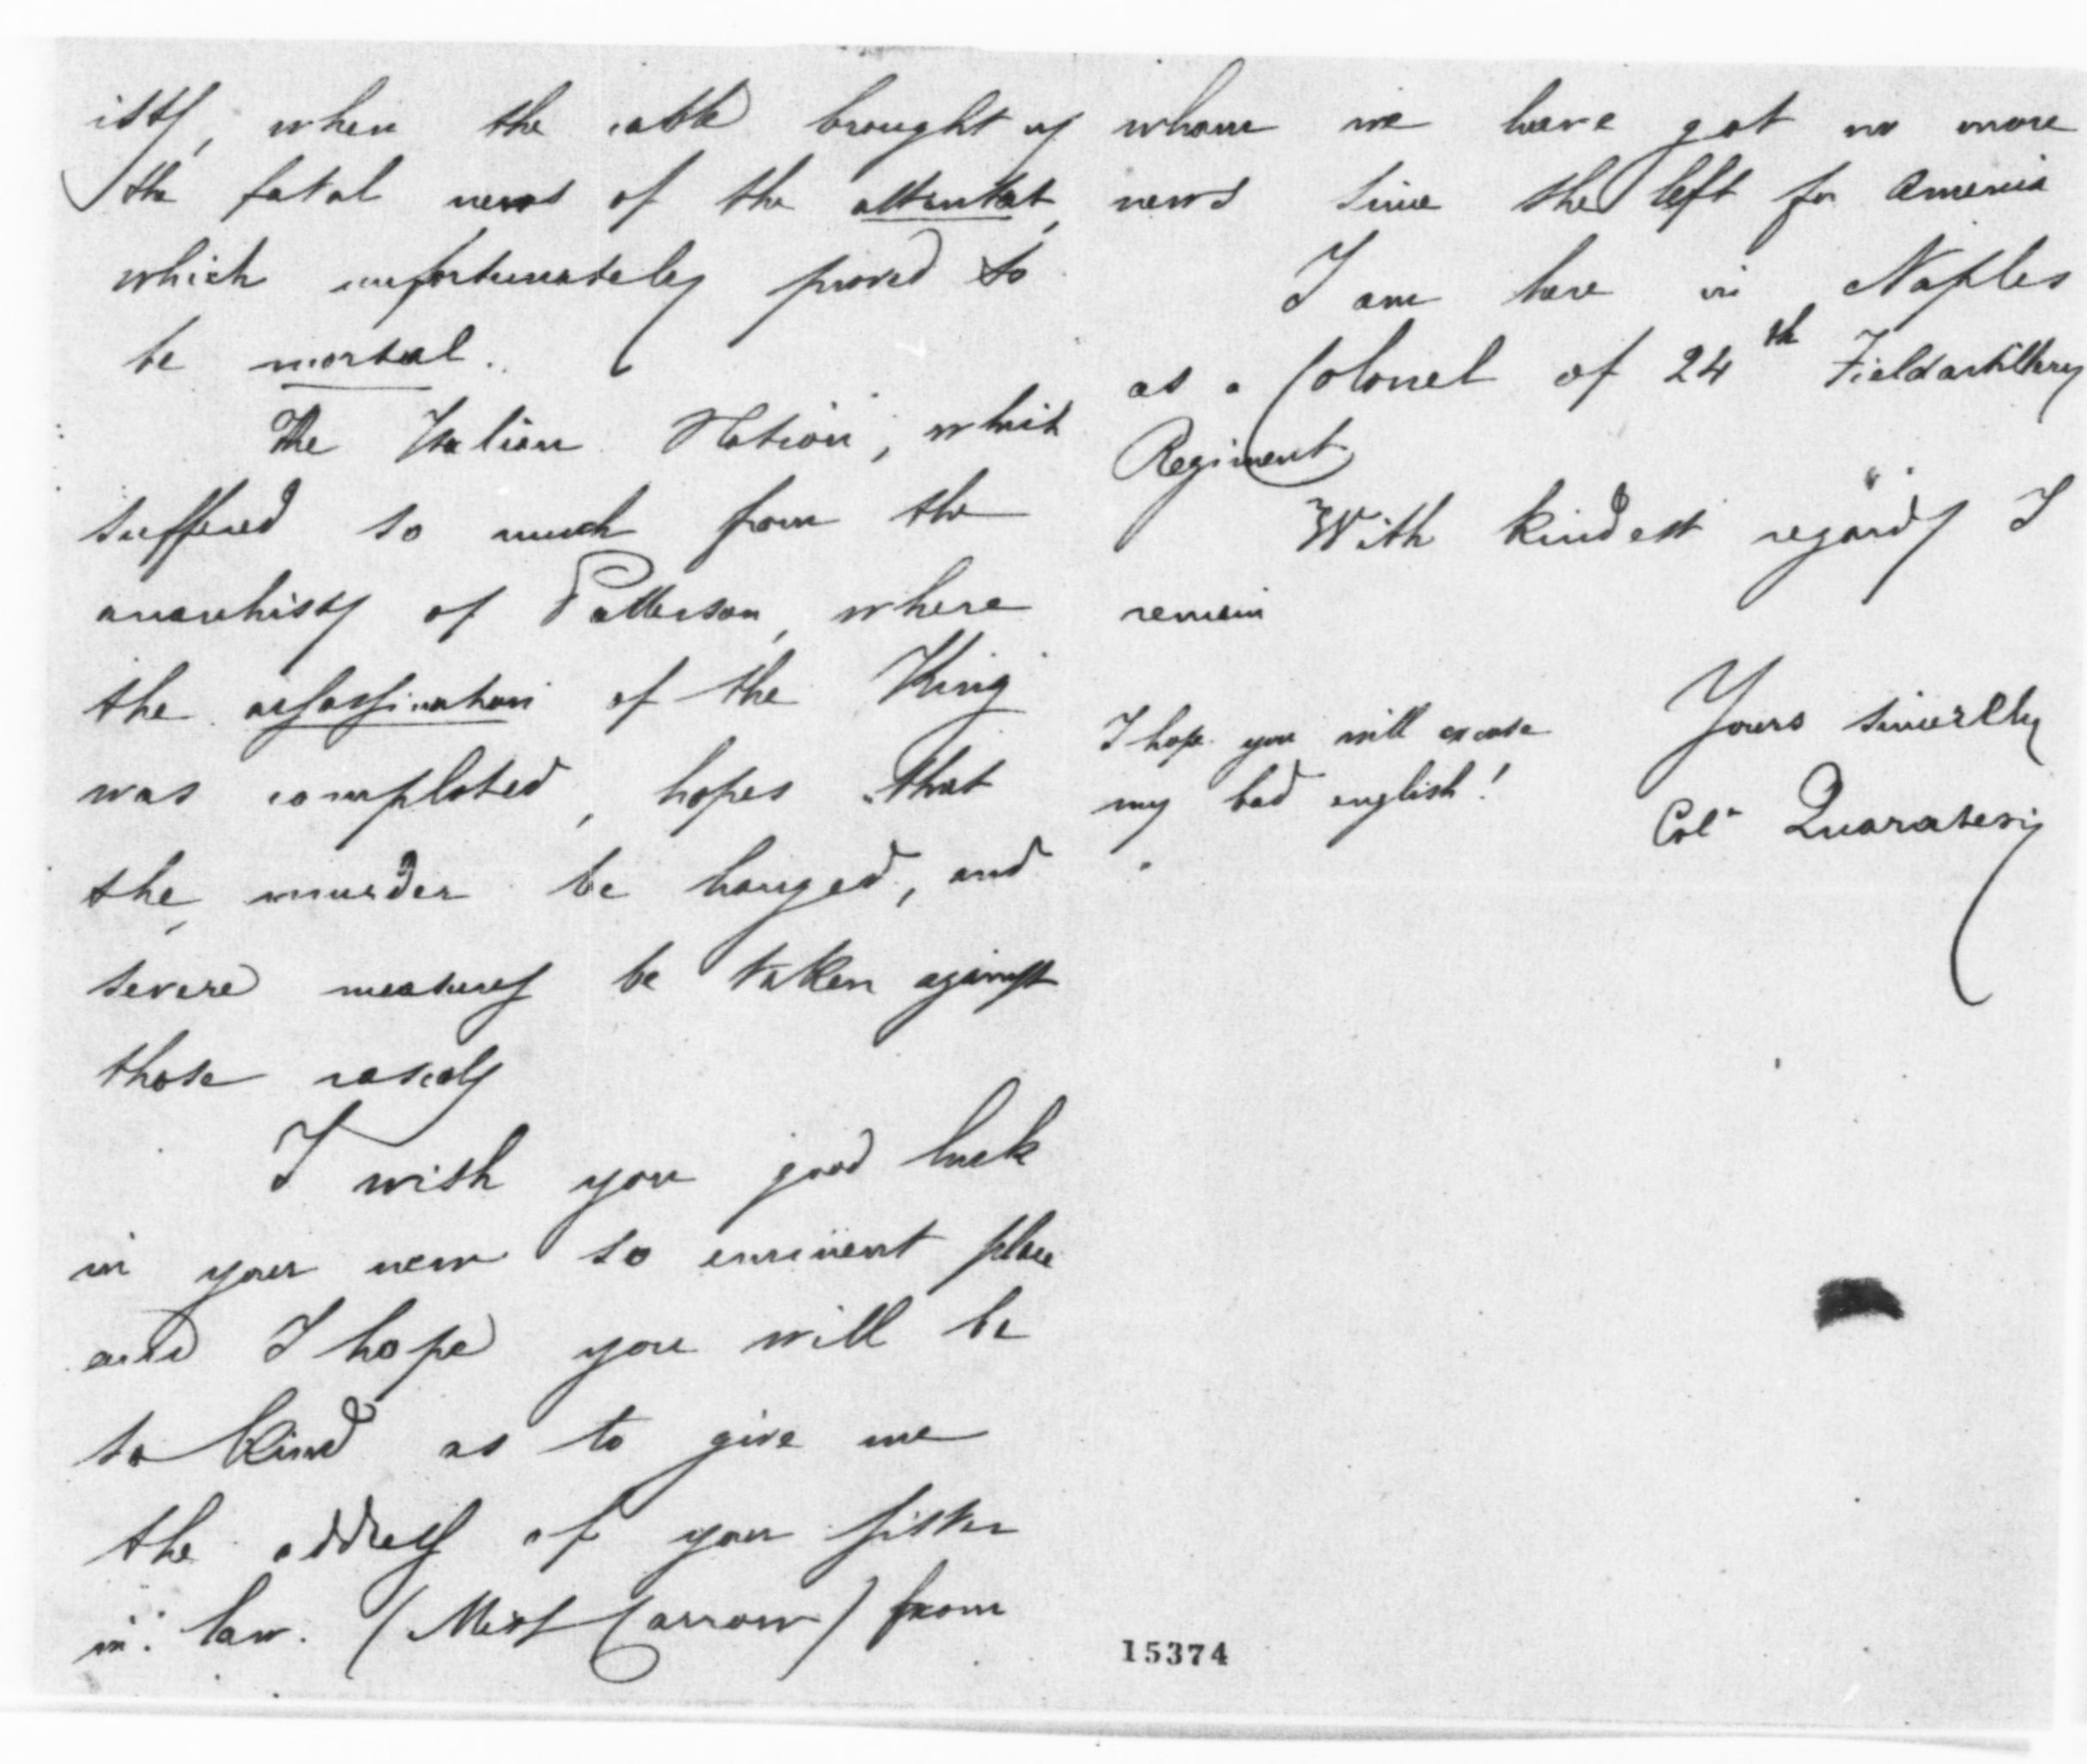 ists, when the cable brought us
the fatal news of the attentat,
which unfortunately proved to
be mortal.
The Italian Nation, which
suffered so much from the
anarchists of Patterson, where
the assassination of the King
was completed, hopes that
the murder be hanged, and
severe measures be taken against
those rascals
I wish you good luck
in your new so eminent place
and I hope you will be
so kind as to give me
the address of your sister
in law. (Miss Carrow) from
whom we have got no more
news since she left for America
I am here in Naples
as a Colonel of 24th Fieldartillery
Regiment
With kindest regards I
remain
Yours sincerlly
Col. Quaratesi
I hope you will excuse
my bad english!
15374